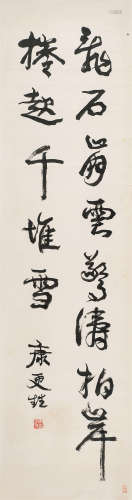 亂石崩雲驚濤拍岸
捲起千堆雪
康更甡